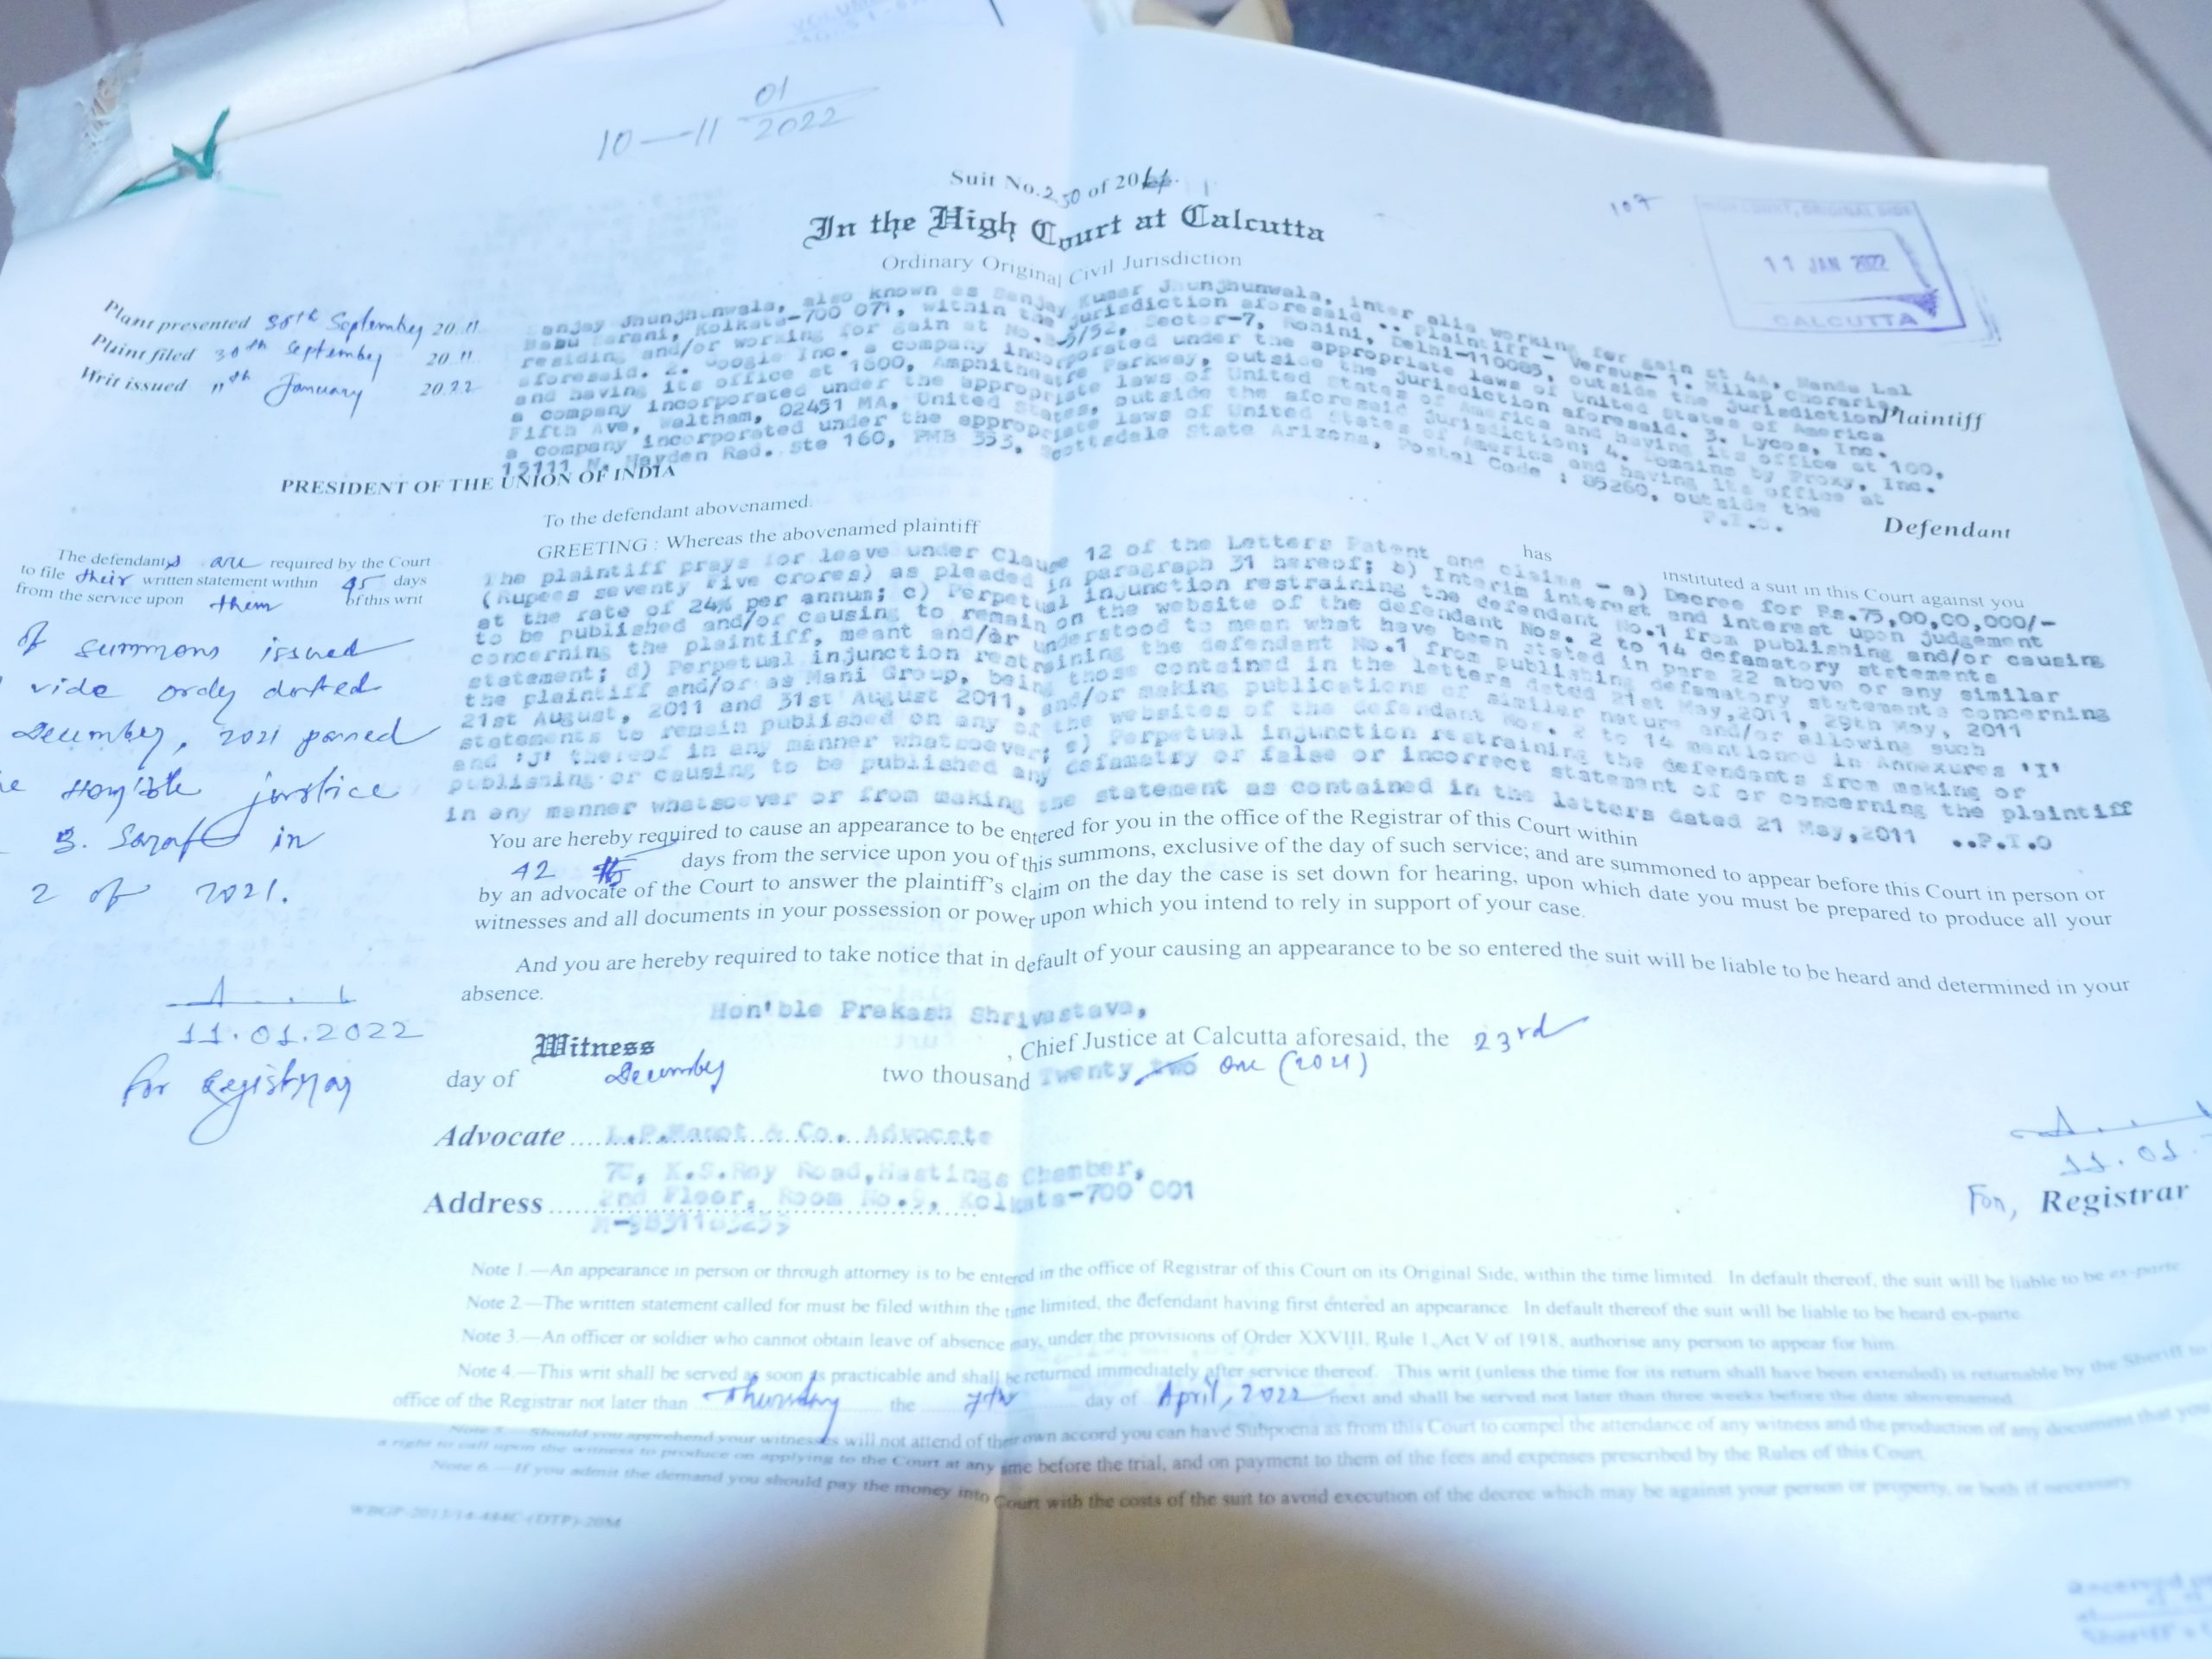 01
10—11 2022
Suit No. 250 of 2011.
In the High Court at Calcutta
Ordinary Original Civil Jurisdiction
107
11 JAN 2022
CALCUTTA
Plaint presented 30th September 2011
Plaint filed 30th September 2011
Writ issued 11th January 2022
Sanjay Jhunjhunwala, also known as Sanjay Kumar Jhunjhunwala, inter alia working for gain at 4A, Nanda Lal
Basu Sarani, Kolkata-700 071, within the jurisdiction aforesaid .. Plaintiff - Versus- 1. Milap Choraria
residing and/or working for gain at No. 5/52, Sector-7, Rohini, Delhi-110085, outside the jurisdiction
aforesaid. 2. Google Inc. a company incorporated under the appropriate laws of United States of America
and having its office at 1600, Amphitheatre Parkway, outside the jurisdiction aforesaid. 3. Lycos, Inc.
a company incorporated under the appropriate laws of United States of America and having its office at 100,
Fifth Ave, Waltham, 02451 MA, United States, outside the aforesaid jurisdiction; 4. Domains by Proxy, Inc.
a company incorporated under the appropriate laws of United States of America and having its office at
15111 N. Hayden Rad. Ste 160, PMB 353, Scottsdale State Arizona, Postal Code : 85260, outside the
P.T.O.
Plaintiff
PRESIDENT OF THE UNION OF INDIA
Defendant
To the defendant abovenamed.
GREETING : Whereas the abovenamed plaintiff has instituted a suit in this Court against you
The plaintiff prays for leave under Clause 12 of the Letters Patent and claims - a) Decree for Rs.75,00,00,000/-
(Rupees seventy Five crores) as pleaded in paragraph 31 hereof; b) Interim interest and interest upon judgement
at the rate of 24% per annum; c) Perpetual injunction restraining the defendant No.1 from publishing and/or causing
to be published and/or causing to remain on the website of the defendant Nos. 2 to 14 defamatory statements
concerning the plaintiff, meant and/or understood to mean what have been stated in para 22 above or any similar
statement; d) Perpetual injunction restraining the defendant No.1 from publishing defamatory statements concerning
the plaintiff and/or as Mani Group, being those contained in the letters dated 21st May,2011, 29th May, 2011
21st August, 2011 and 31st August 2011, and/or making publications of similar nature and/or allowing such
statements to remain published on any of the websites of the defendant Nos. 2 to 14 mentioned in Annexures 'I'
and 'J' thereof in any manner whatsoever; e) Perpetual injunction restraining the defendants from making or
publishing or causing to be published any defamatry or false or incorrect statement of or concerning the plaintiff
in any manner whatsoever or from making the statement as contained in the letters dated 21 May,2011 ..P.T.O
The defendants are required by the Court
to file their written statement within days
from the service upon them of this writ
of summons issued
vide order dated
December, 2021 passed
Hon'ble justice
B. Saraf in
2 of 2021.
11.01.2022
for Registrar
You are hereby required to cause an appearance to be entered for you in the office of the Registrar of this Court within
42 days from the service upon you of this summons, exclusive of the day of such service; and are summoned to appear before this Court in person or
by an advocate of the Court to answer the plaintiff's claim on the day the case is set down for hearing, upon which date you must be prepared to produce all your
witnesses and all documents in your possession or power upon which you intend to rely in support of your case.
And you are hereby required to take notice that in default of your causing an appearance to be so entered the suit will be liable to be heard and determined in your
absence.
Hon'ble Prakash Shrivastava,
Witness , Chief Justice at Calcutta aforesaid, the 23rd
day of December two thousand Twenty two One (2021)
Advocate ....L.P.Manot & Co. Advocate
7C, K.S.Roy Road,Hastings Chamber,
Address 2nd Floor, Room No.9, Kolkata-700 001
11.01.
For, Registrar
Note 1.—An appearance in person or through attorney is to be entered in the office of Registrar of this Court on its Original Side, within the time limited. In default thereof, the suit will be liable to be ex-parte
Note 2.—The written statement called for must be filed within the time limited, the defendant having first entered an appearance. In default thereof the suit will be liable to be heard ex-parte.
Note 3.—An officer or soldier who cannot obtain leave of absence may, under the provisions of Order XXVIII, Rule 1, Act V of 1918, authorise any person to appear for him.
Note 4.—This writ shall be served as soon as practicable and shall be returned immediately after service thereof. This writ (unless the time for its return shall have been extended) is returnable by the Sheriff to
office of the Registrar not later than Thursday the 7th day of April, 2022 next and shall be served not later than three weeks before the date abovenamed.
Note 5.—Should you apprehend your witnesses will not attend of their own accord you can have Subpoena as from this Court to compel the attendance of any witness and the production of any document that you
a right to call upon the witness to produce on applying to the Court at any time before the trial, and on payment to them of the fees and expenses prescribed by the Rules of this Court.
Note 6.—If you admit the demand you should pay the money into Court with the costs of the suit to avoid execution of the decree which may be against your person or property, or both if necessary.
WBGP-2013/14-484C-(DTP)-20M